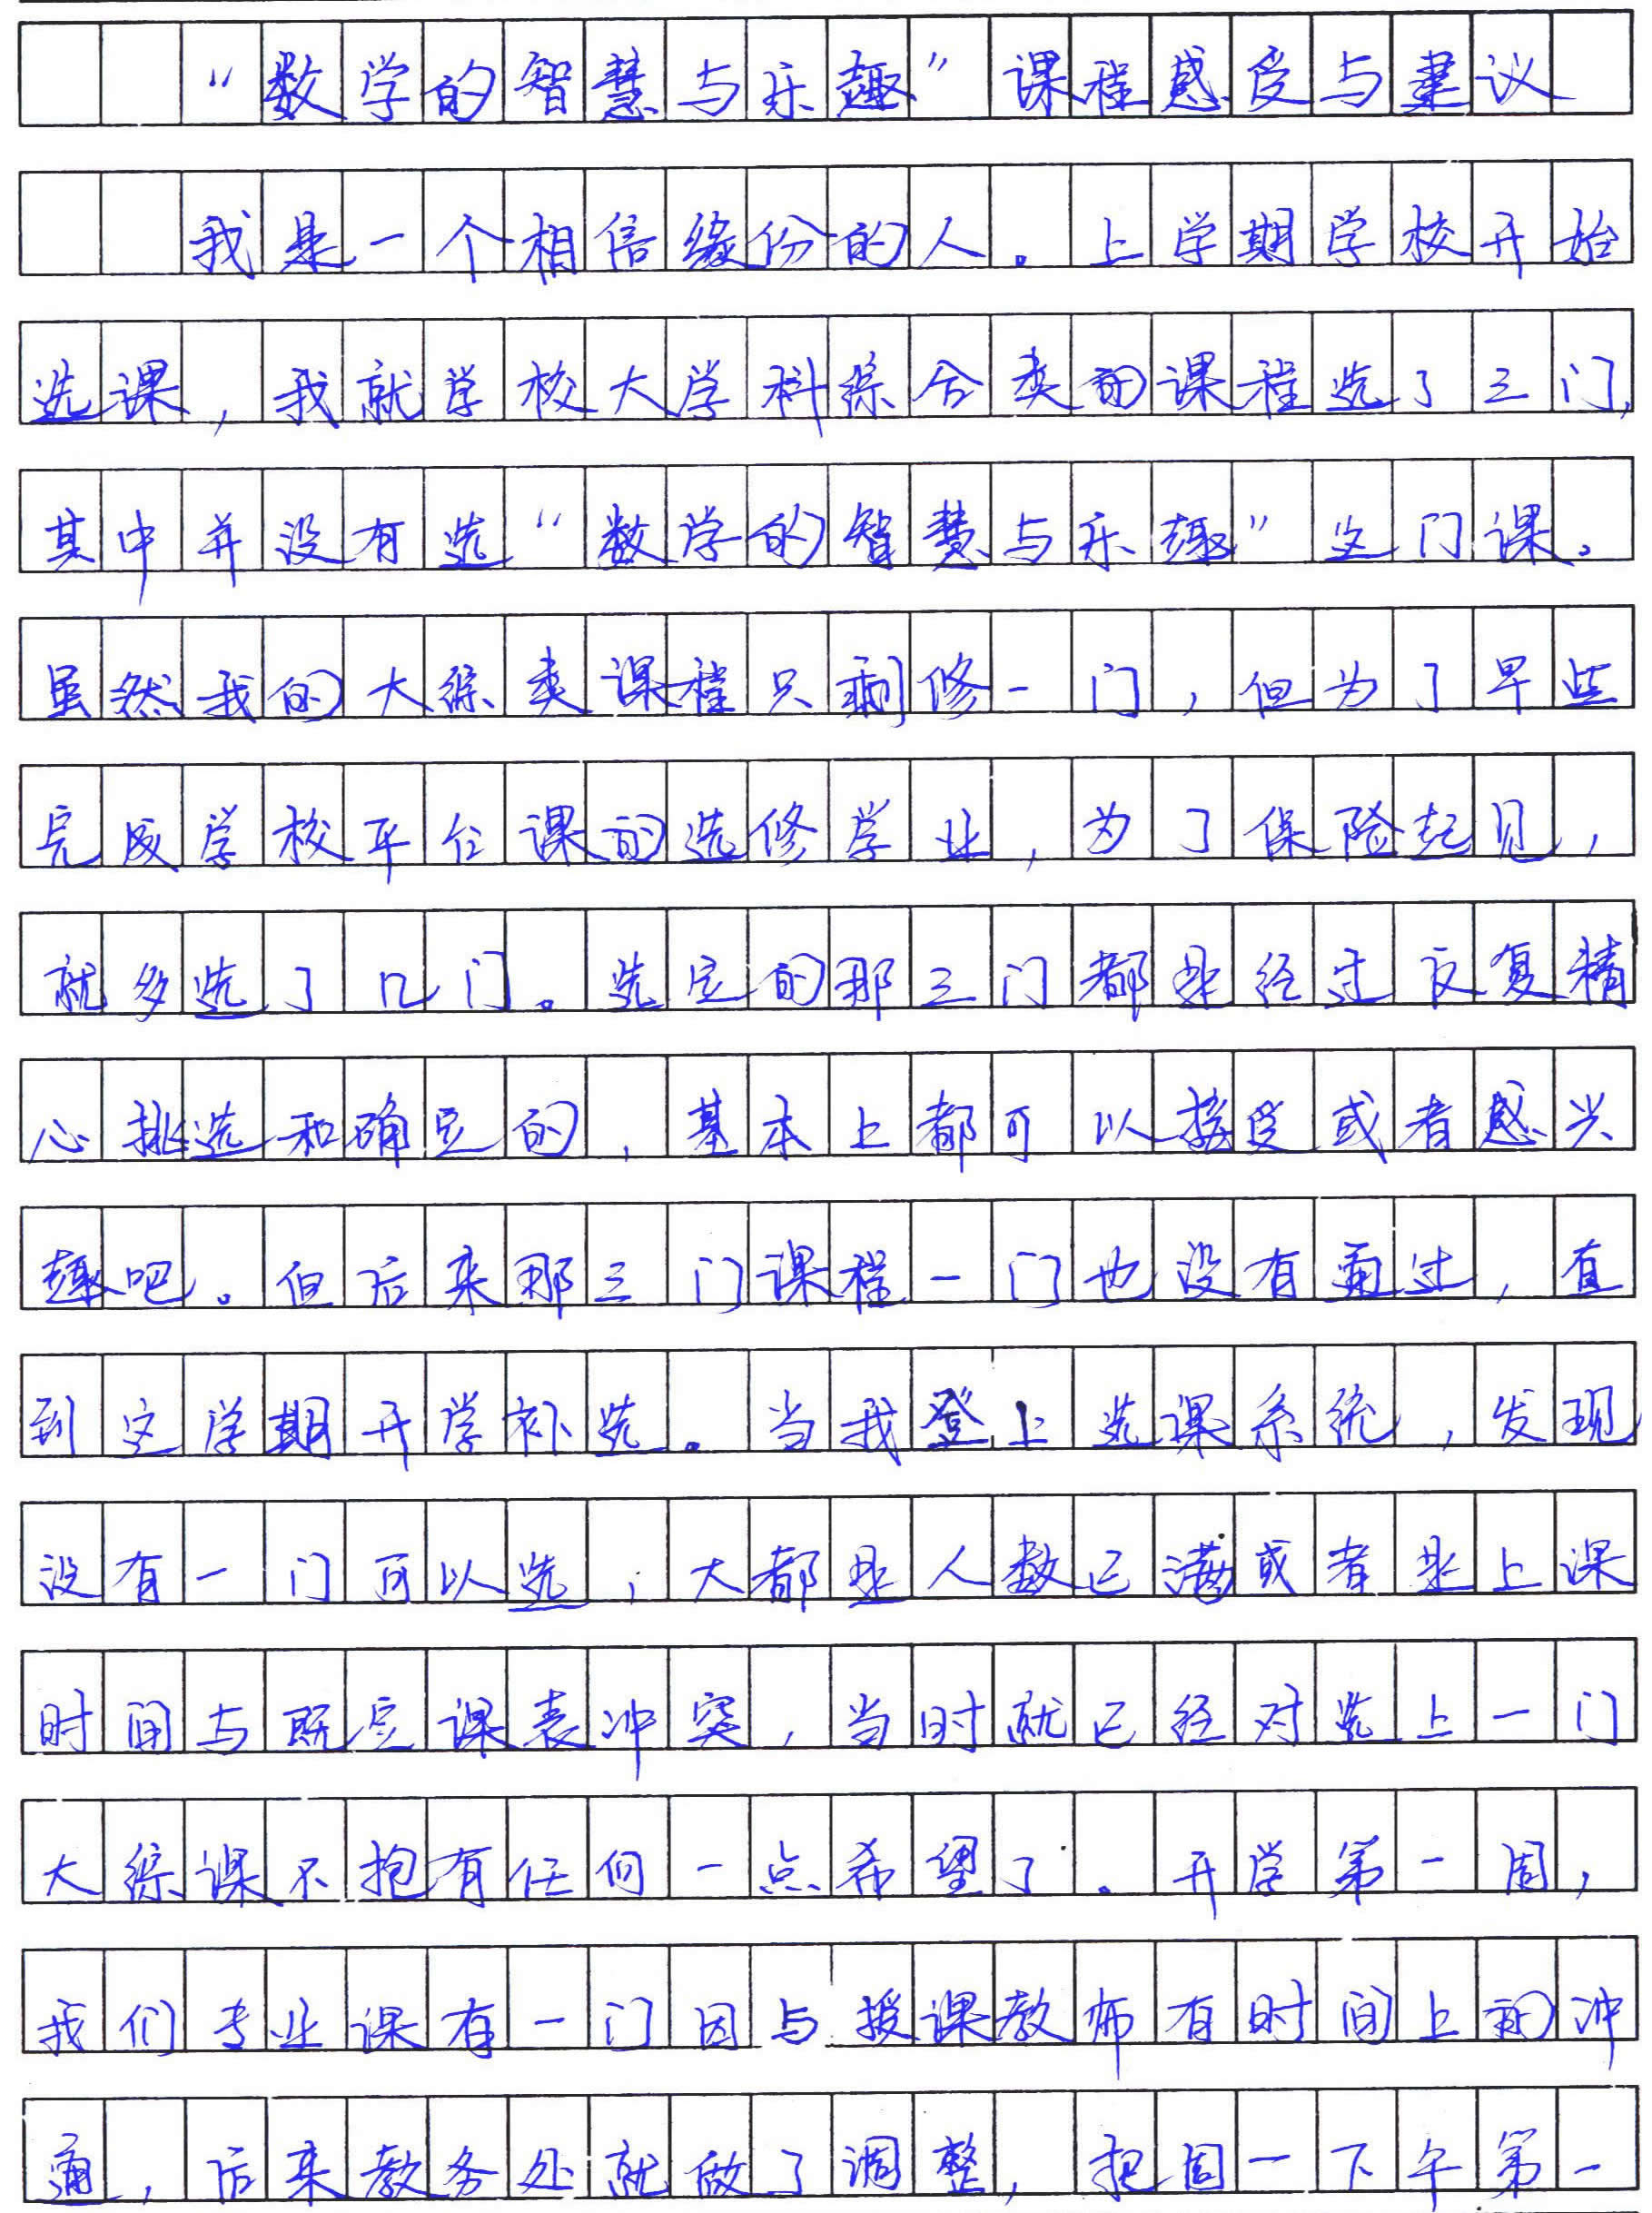 “数学的智慧与乐趣”课程感受与建议
我是一个相信缘份的人。上学期学校开始
选课,我就学校大学科综合类的课程选了三门,
其中并没有选“数学的智慧与乐趣”这门课。
虽然我的大综类课程只剩修一门,但为了早些
完成学校平台课的选修学业,为了保险起见,
就多选了几门。选定的那三门都是经过反复精
心挑选和确定的,基本上都可以接受或者感兴
趣吧。但后来那三门课程一门也没有通过,直
到这学期开学补选。当我登上选课系统,发现
没有一门可以选,大都是人数已满或者是上课
时间与既定课表冲突,当时就已经对选上一门
大综课不抱有任何一点希望了。开学第一周,
我们专业课有一门因与授课教师有时间上的冲
通,后来教务处就做了调整,把周一下午第一